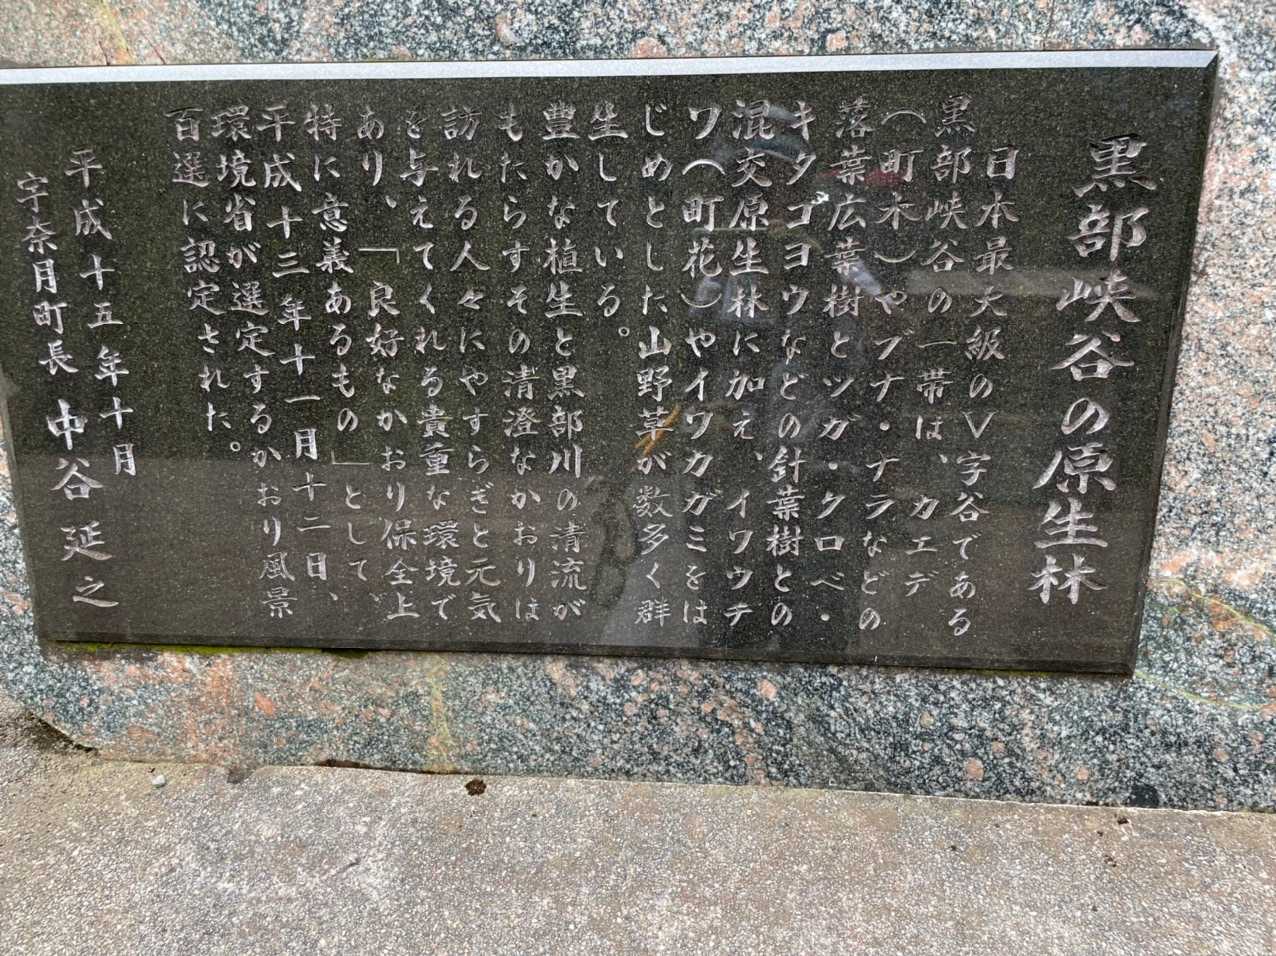 黒部峡谷の原生林
日本最大級のV字谷である
黒部峡谷の一帯は、カエデ
（町木）やブナ・ナラなどの
落葉広葉樹とツガ・クロベ・
キタコヨウなどの針葉樹との
混交原生林に加え、イワウチ
ワ（町花）やイワカガミをは
じめとした山野草が数多く群
生している。
豊かな植生と黒部川の清流が
もたらすその清澄なかおりは
訪れる人々にやすらぎと元気
を与えてくれる貴重な環境で
あり、「良好なかおり保全上
特に意義あるもの」として、
平成十三年十一月十二日、
環境省が選定するかおり風景
百選に認定された。
平成十五年十月
宇奈月町長 中谷 延之